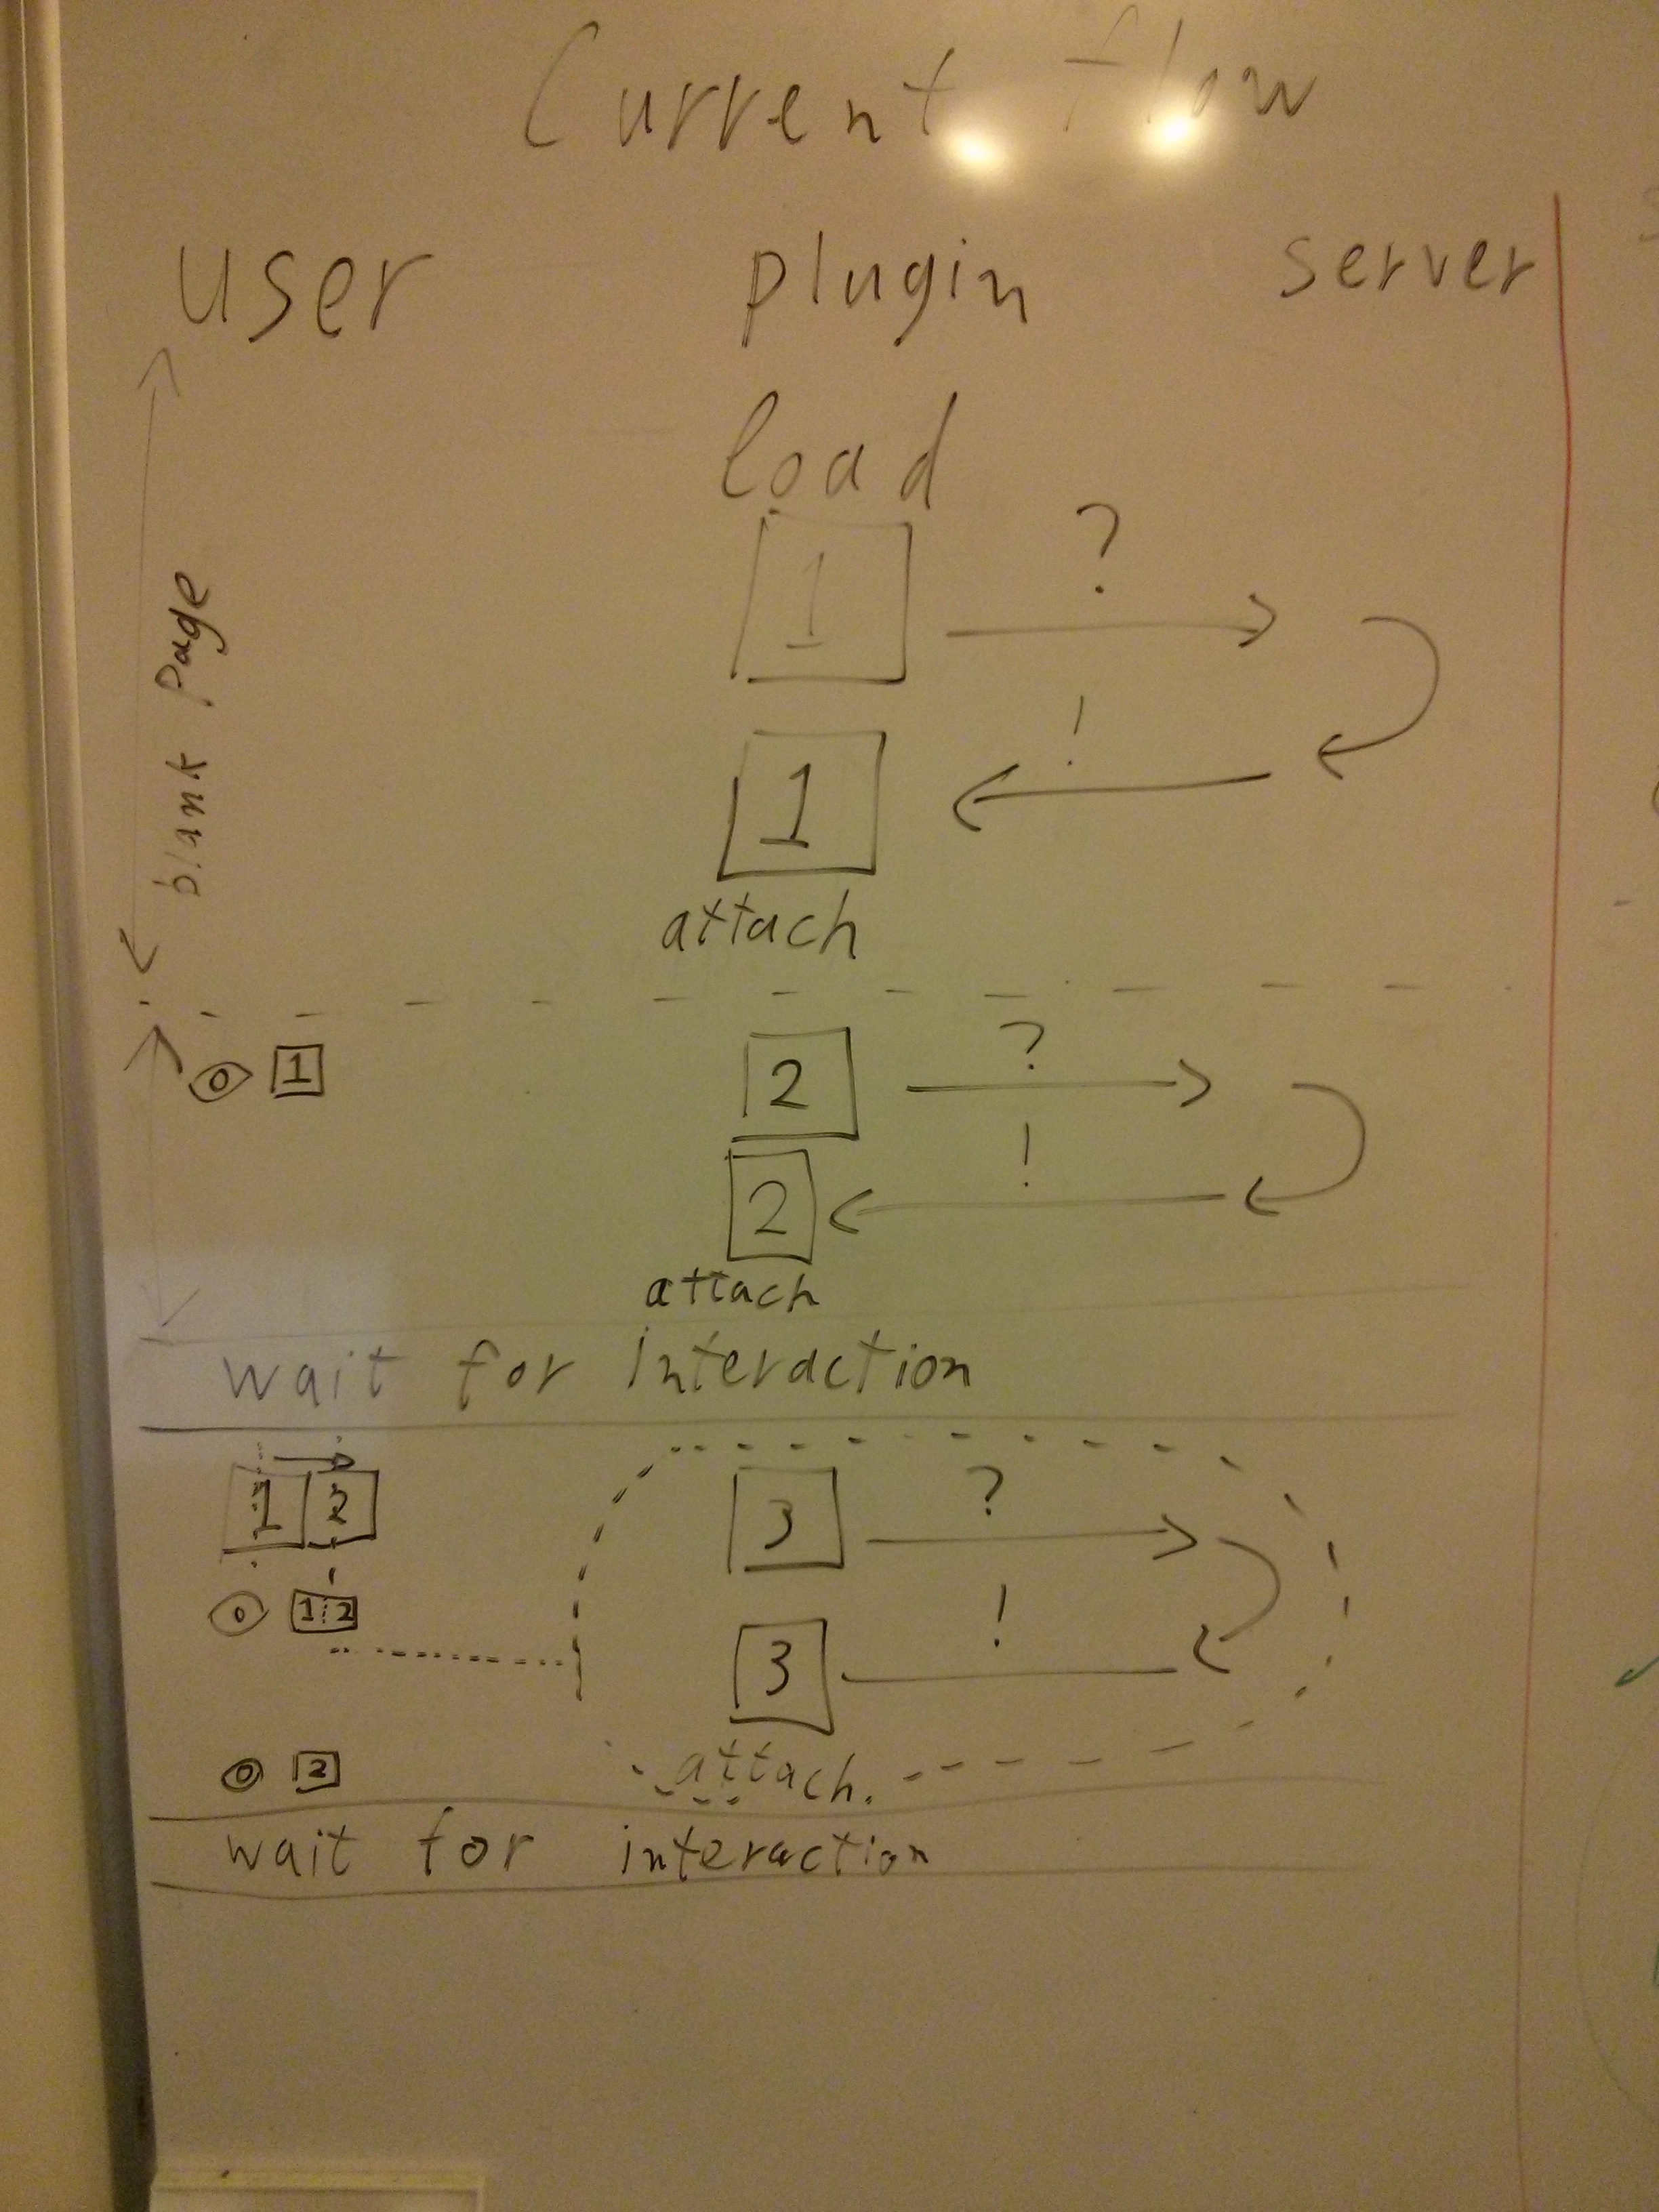 Current flow
user plugin server
load
1 ?
!
1
attach
blank Page
1 2 ?
!
2
attach
wait for interaction
1 2 3 ?
1 2 !
3
2 attach.
wait for interaction